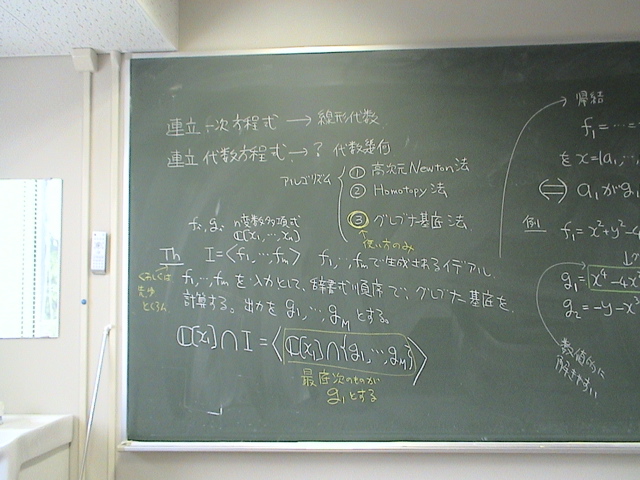 連立一次方程式 → 線形代数
連立代数方程式 → ? 代数幾何
アルゴリズム
① 高次元Newton法
② Homotopy法
③ グレブナ基底法
使い方のみ
f_i, g_i n変数多項式
ℂ[x₁,…,xₙ]
Th I=⟨f₁,…,fₘ⟩ f₁,…,fₘで生成されるイデアル.
くわしくは
f₁,…,fₘを入力として, 辞書式順序で, グレブナ基底を,
計算する。出力をg₁,…,g_Mとする。
ℂ[x₁]∩I=⟨ℂ[x₁]∩{g₁,…,g_M}⟩
最底次のものが
g₁とする
帰結
f₁=…=
をx=(a₁,…
⇔ a₁がg₁
例
f₁=x²+y²-4
g₁=x⁴-4x²
g₂=-y-x³
数値的に
解きやすい